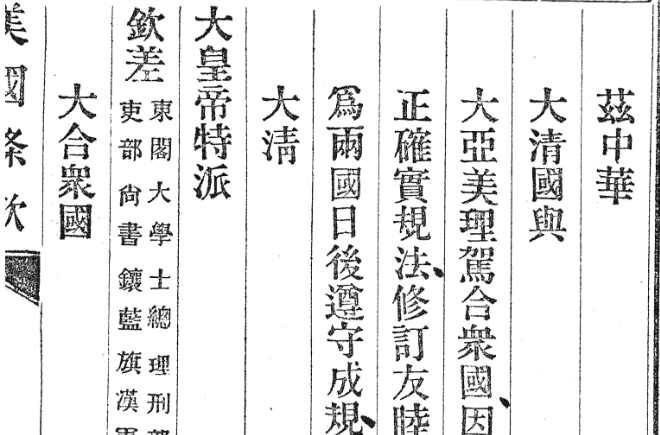 茲中華
大清國與
大亞美理駕合衆國、因
正確實規法、修訂友睦
爲兩國日後遵守成規、
大清
大皇帝特派
欽差東閣大學士總理刑部
吏部尙書鑲藍旗漢軍
大合衆國
美國條款